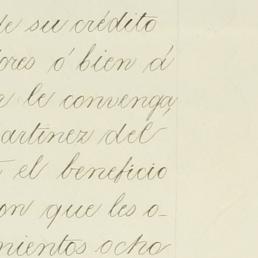 de su crédito
ores ó bien á
le convenga,
artinez del
el beneficio
on que les o-
nientos ocho